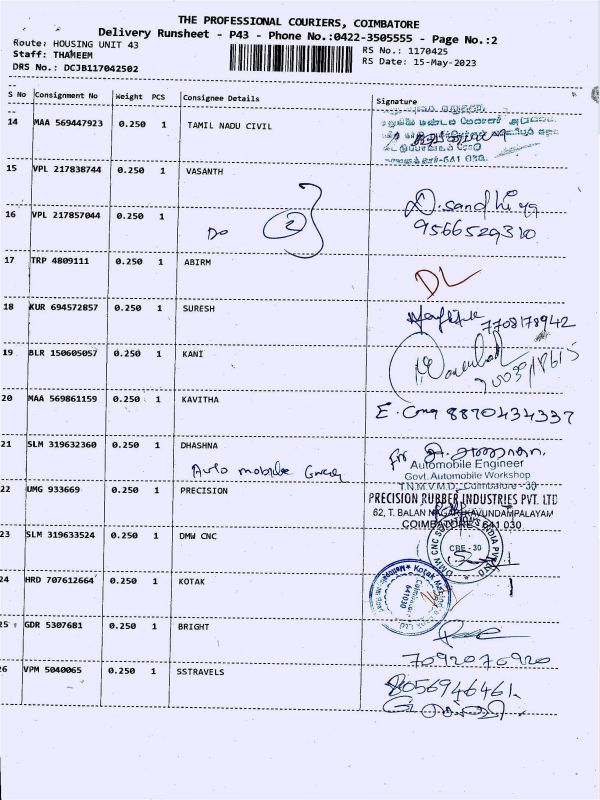 THE PROFESSIONAL COURIERS, COIMBATORE
Delivery Runsheet - P43 - Phone No.:0422-3505555 - Page No.:2
Route: HOUSING UNIT 43 RS No.: 1170425
Staff: THAMEEM RS Date: 15-May-2023
DRS No.: DCJB117042502
S No Consignment No Weight PCS Consignee Details Signature
14 MAA 569447923 0.250 1 TAMIL NADU CIVIL
15 VPL 217838744 0.250 1 VASANTH
16 VPL 217857044 0.250 1 Do 2 D. sandhiya
9566529310
17 TRP 4809111 0.250 1 ABIRM DL
18 KUR 694572857 0.250 1 SURESH 7708178942
19 BLR 150605057 0.250 1 KANI
20 MAA 569861159 0.250 1 KAVITHA 8870434337
21 SLM 319632360 0.250 1 DHASHNA
Auto mobile Automobile Engineer
Govt. Automobile Workshop
T.N.M.V.M.D. Coimbatore - 30
22 UMG 933669 0.250 1 PRECISION PRECISION RUBBER INDUSTRIES PVT. LTD
62, T. BALAN NAGAR, KAVUNDAMPALAYAM
COIMBATORE - 641 030
23 SLM 319633524 0.250 1 DMW CNC CBE - 30
24 HRD 707612664 0.250 1 KOTAK 641030
25 GDR 5307681 0.250 1 BRIGHT
7092070920
26 VPM 5040065 0.250 1 SSTRAVELS 8056946461